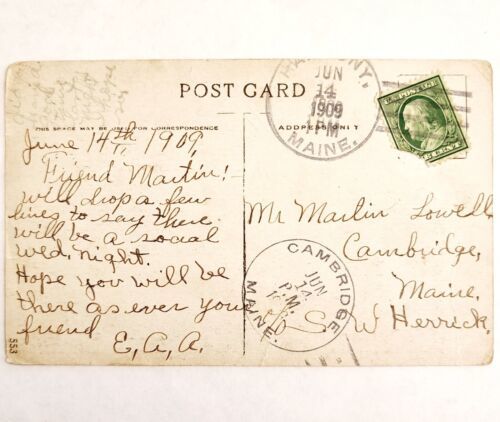 POST CARD
THIS SPACE MAY BE USED FOR CORRESPONDENCE
ADDRESS ONLY
June 14th 1909
Friend Martin!-
will drop a few
lines to say there
will be a social
wed, night.
Hope you will be
there as ever your
friend
E, A, A.
553
HARMONY,
JUN
14
1909
1 PM
MAINE.
U.S. POSTAGE
Mr Martin Lowell
Cambridge,
Maine,
c/o S. W Herrick,
CAMBRIDGE
JUN
14
P.M.
MAINE.